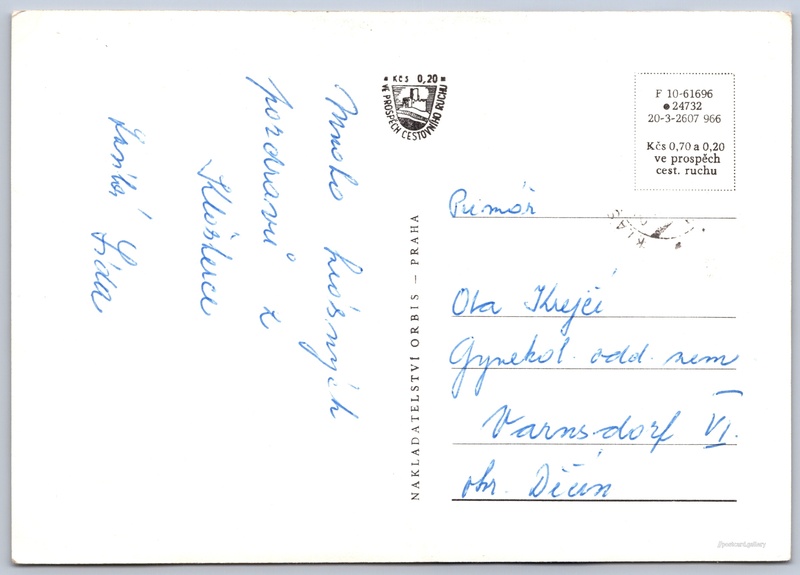 Mnoho krásných
pozdravů z
Klášterce
Lída
Kčs 0,20
VE PROSPĚCH CESTOVNÍHO RUCHU
F 10-61696
24732
20-3-2607 966
Kčs 0,70 a 0,20
ve prospěch
cest. ruchu
NAKLADATELSTVÍ ORBIS – PRAHA
Primář
Ota Krejčí
Gynekol. odd. nem
Varnsdorf VI.
okr. Děčín